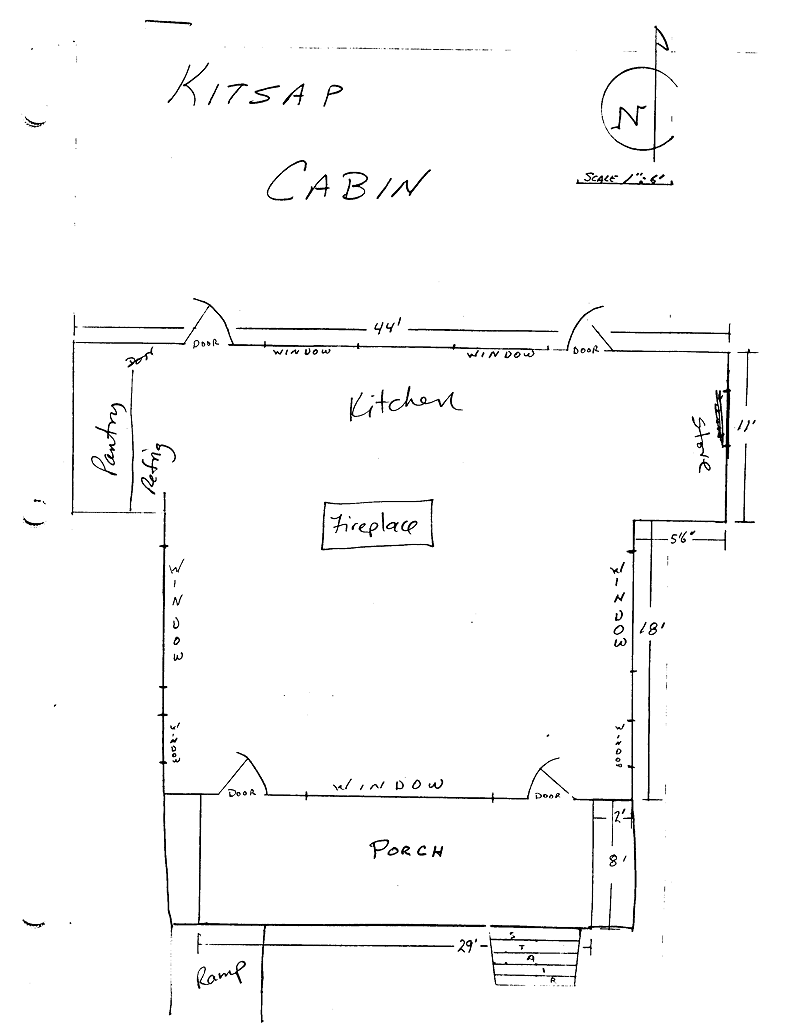 KITSAP
CABIN
N
SCALE 1":6'
44'
DOOR
WINDOW
WINDOW
DOOR
Door
Kitchen
Pantry
Refrig
Stove
11'
Fireplace
5'6"
WINDOW
WINDOW
18'
WINDOW
WINDOW
DOOR
WINDOW
DOOR
2'
PORCH
8'
29'
STAIR
Ramp